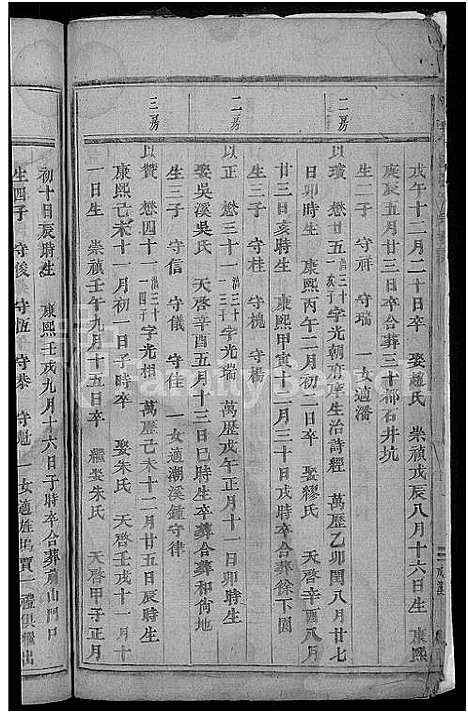 戊午十二月二十日卒 娶趙氏 崇禎戊辰八月十六日生 康熙
庚辰五月廿三日卒合葬三十都石井坑
生二子 守祥 守瑞 一女適潘
二房
以璸 懋廿五 字光朝府庠生治詩經 萬歷乙卯閏八月廿七
日卯時生 康熙丙午二月初二日卒 娶繆氏 天啓辛酉八月
廿三日亥時生 康熙甲寅十二月三十日戌時卒合葬餘下園
生三子 守桂 守槐 守楊
二房
以正 懋三十一 字光瑞 萬歷戊午正月十一日卯時生
娶吳溪吳氏 天啓辛酉五月十三日巳時生卒葬合葬和尚地
生三子 守信 守儀 守佳 一女適潮溪鍾守律
三房
以贊 懋四十一 字光相 萬歷己未十一月廿五日辰時生
康熙己未十一月初一日子時卒 娶朱氏 天啓壬戌十一月十
一日生 崇禎壬午九月十五日卒 繼娶朱氏 天啓甲子正月
初十日辰時生 康熙壬戌九月十六日子時卒合葬 山門口
生四子 守俊 守恆 守恭 守魁 一女適 塢賈一禮俱繼出